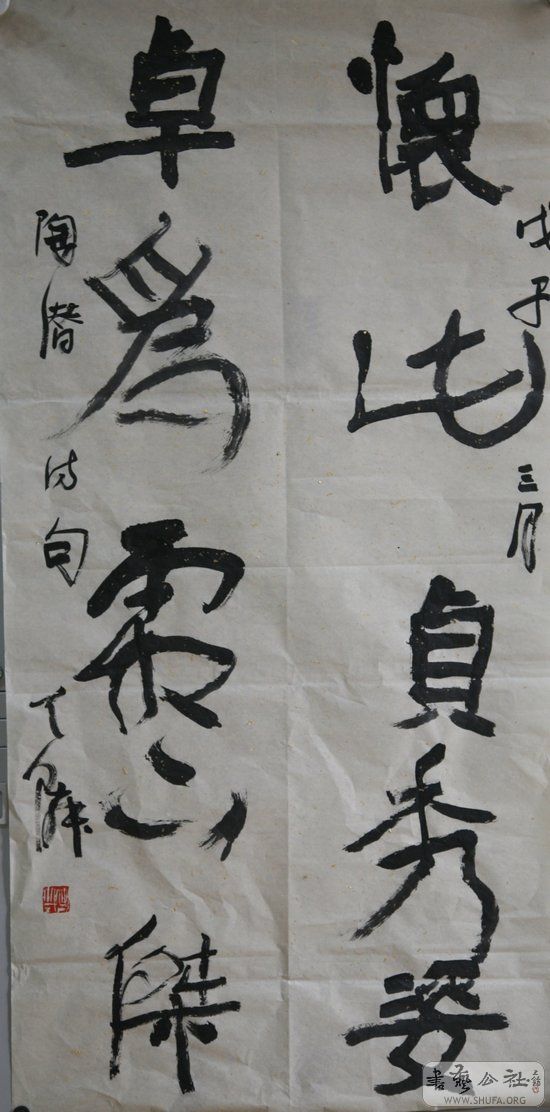 戊子三月
懷此貞秀姿
卓爲霜下傑
陶潛詩句
書藝公社
WWW.SHUFA.ORG